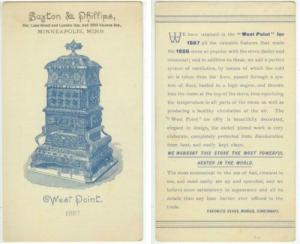 Buxton & Phillips,
MINNEAPOLIS, MINN.
West Point.
1887
WE have retained in the "West Point" for
1887 all the valuable features that made
the 1886 stove so popular with the stove dealer and
consumer; and in addition to these, we add a perfect
system of ventilation, by means of which the cold
air is taken from the floor, passed through a sys-
tem of flues, heated to a high degree, and thrown
into the room at the top of the stove, thus equalizing
the temperature in all parts of the room as well as
producing a healthy circulation of the air. The
"West Point" for 1887 is beautifully decorated,
elegant in design, the nickel plated work is very
elaborate, completely protected from the damages
from heat, and easily kept clean.
WE WARRANT THIS STOVE THE MOST POWERFUL
HEATER IN THE WORLD.
The most economical in the use of fuel, cleanest in
use, and most easily set up and operated, and we
believe more satisfactory in appearance and all its
details than any base burner ever offered to the
trade.
FAVORITE STOVE WORKS, CINCINNATI.